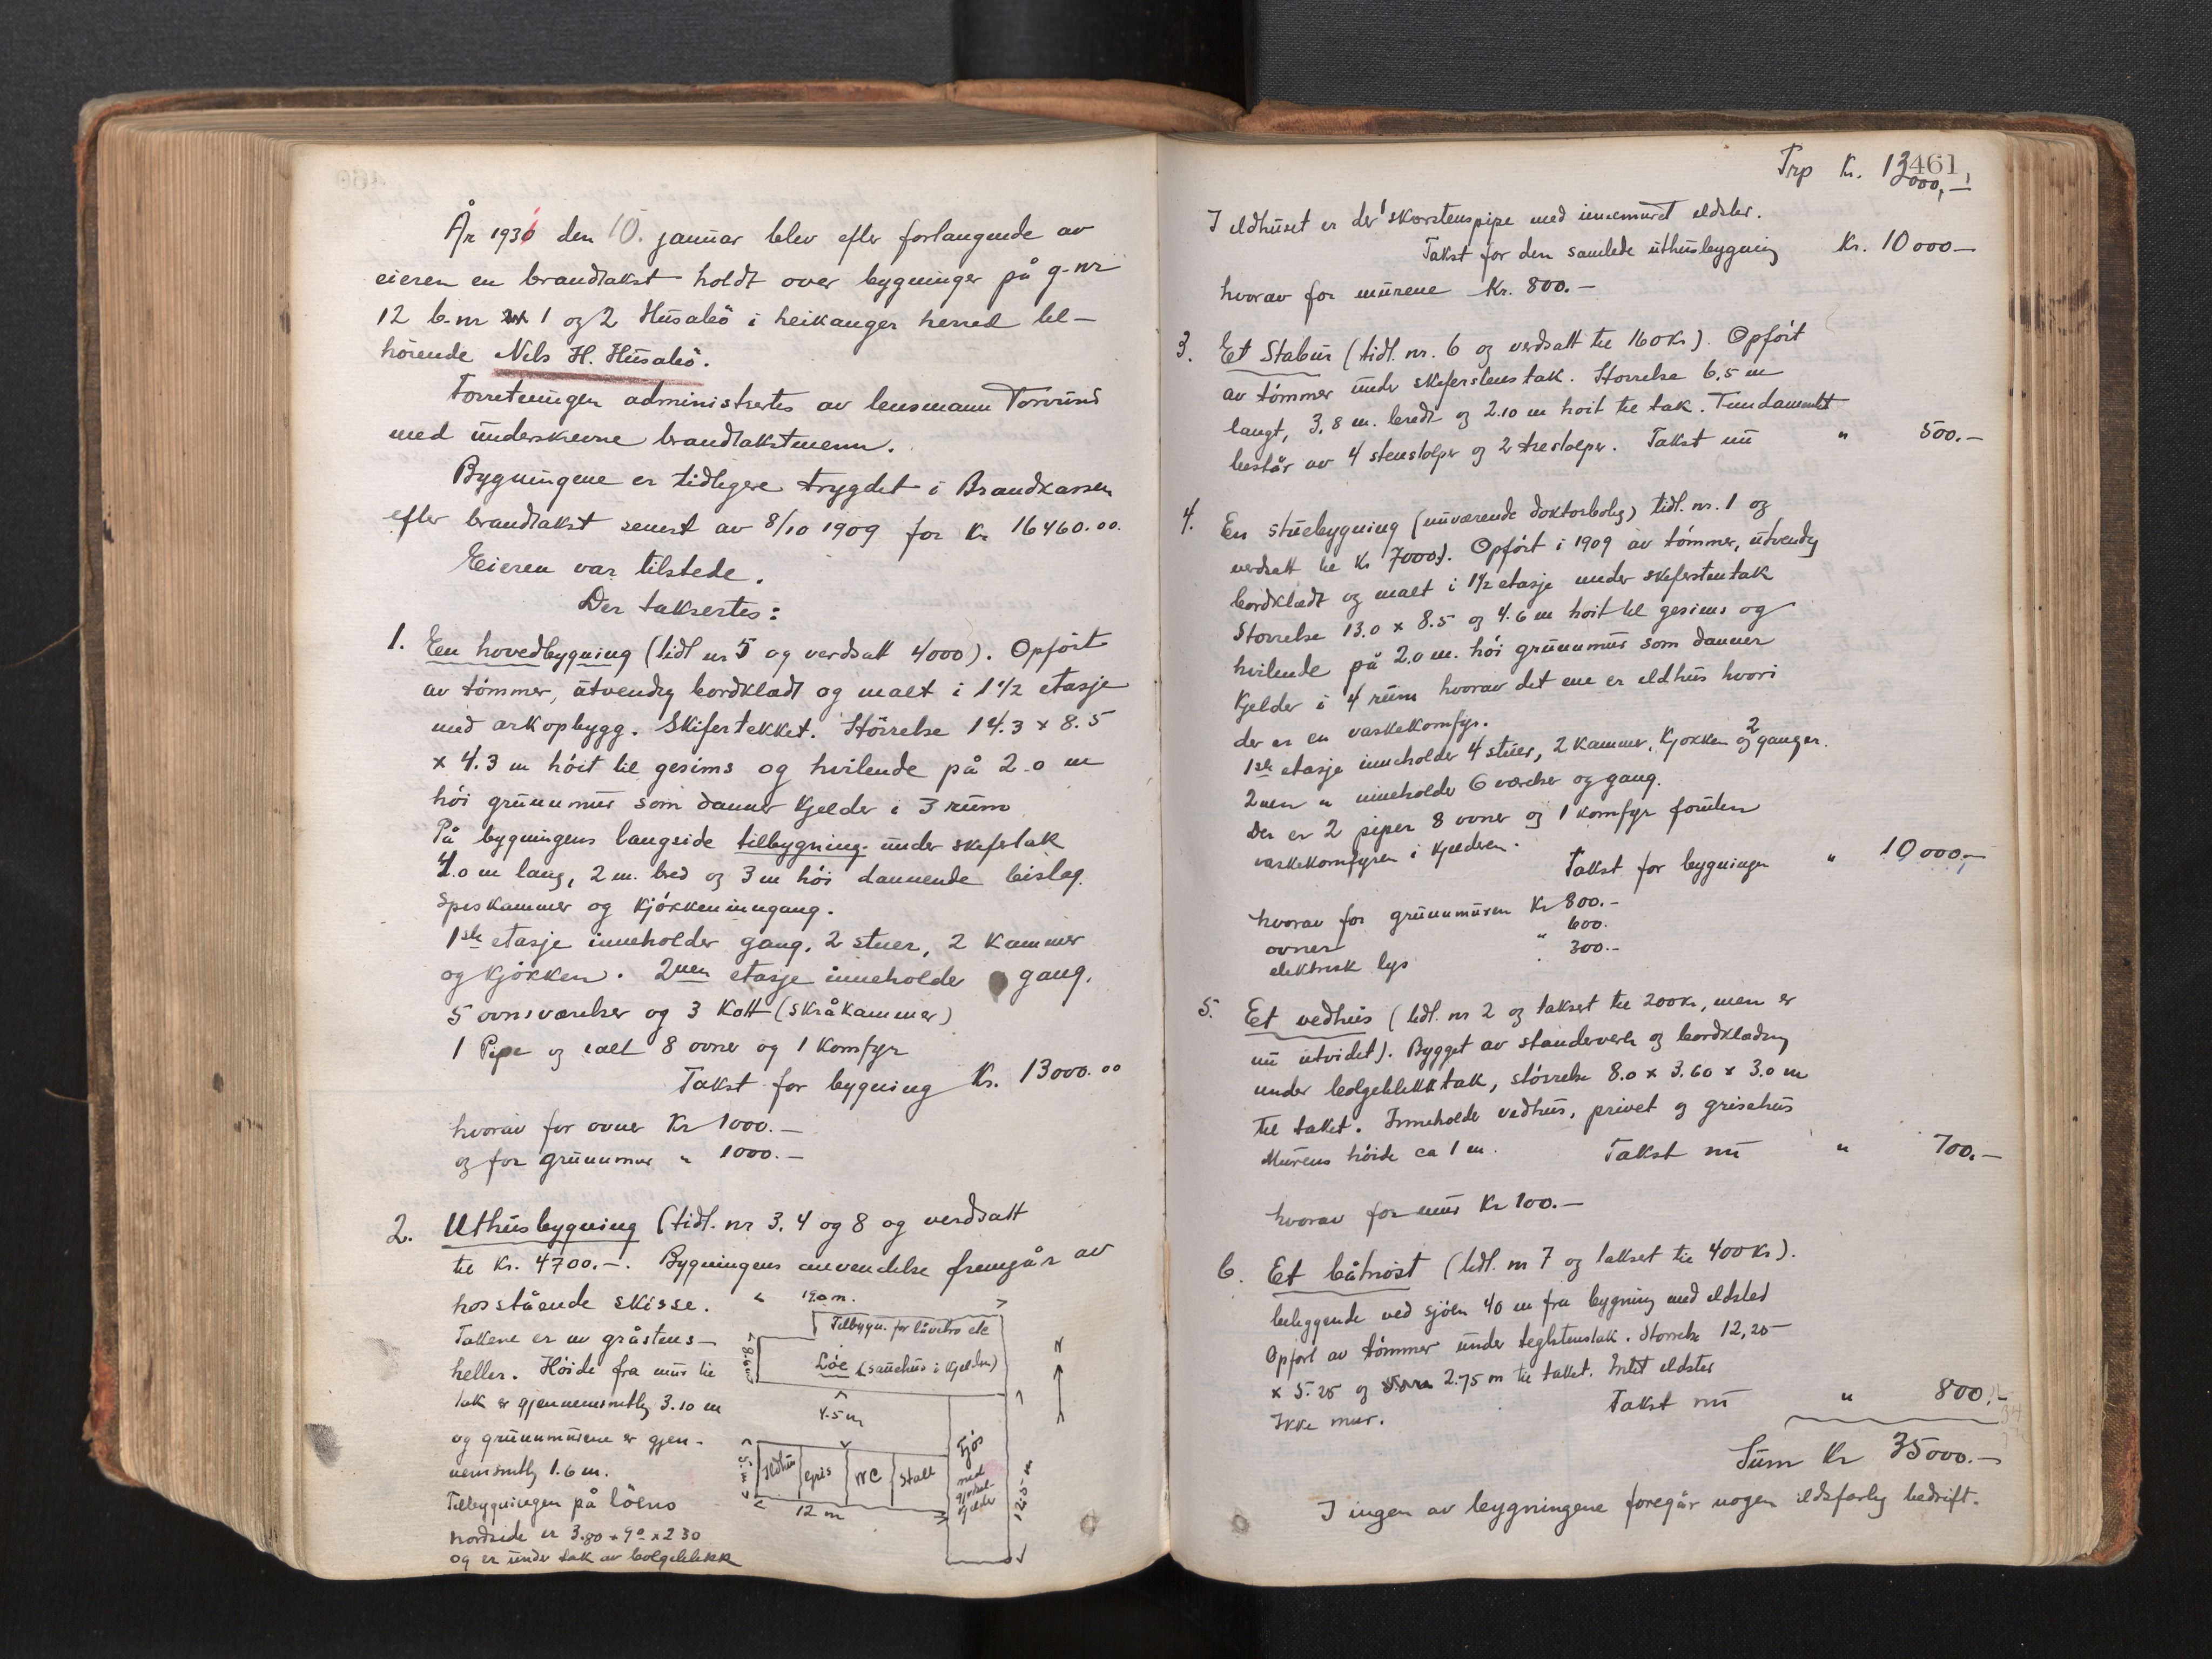 År 193 den 10. januar blev efter forlangende av
eieren en brandtakst holdt over bygninger på g-nr
12 b.nr 1 og 2 Husabö i Leikanger herred til-
hörende Nils H. Husabö.
Forretningen administrertes av lensmann Torvund
med underskrevne brandtakstmenn.
Bygningene er tidligere trygdet i Brandkassen
efter brandtakst senest av 8/10 1909 for kr 16460.00.
Eieren var tilstede.
Der taksertes:
1. En hovedbygning (tidl nr 5 og verdsatt 4000). Opfört
av tömmer, utvendig bordklædt og malt i 1 1/2 etasje
med arkopbygg. Skifertekket. Störrelse 14.3 x 8.5
x 4.3 m höit til gesims og hvilende på 2.0 m
höi grunnmur som danner kjelder i 3 rum
På bygningens langside tilbygning under skifertak
4.0 m lang, 2 m. bred og 3 m höi dannende bislag
Spiskammer og kjökkeninngang.
1ste etasje inneholder gang, 2 stuer, 2 kammer
og kjökken. 2nen etasje inneholder gang,
5 ovnsværelser og 3 Kott (skråkammer)
1 Pipe og ialt 8 ovner og 1 komfyr
Takst for bygning Kr. 13000.00
hvorav for ovner Kr 1000.-
og for grunnmur " 1000.-
2. Uthusbygning (tidl. nr 3, 4 og 8 og verdsatt
til Kr. 4700.-. Bygningens anvendelse fremgår av
hosstående skisse.
Takene er av gråstens-
heller. Höide fra mur til
tak er gjennemsnitlig 3.10 m
og grunnmurene er gjen-
nemsnitlig 1.6 m.
Tilbygningen på löens
nordside er 3.80 x 9.0 x 2 30
og er under tak av bolgeblikk
19.0 m.
Tilbygn. for låvebro etc
8.6 m
Löe (sauehus i kjelder)
N
4.5 m
5.5 m
Ildhus
gris
WC
Stall
Fjös
med
gjödsel-
kjelder
12.5 m
12 m
461
Trp Kr. 13000,-
I eldhuset er der 1 skorstenspipe med innemuret eldster.
Takst for den samlede uthusbygning Kr. 10000-
hvorav for murene Kr. 800.-
3. Et Stabur (tidl. nr. 6 og verdsatt til 160 kr). Opfört
av tömmer under skiferstens tak. Storrelse 6,5 m
langt, 3.8 m. bredt og 2.10 m hoit til tak. Fundamentet
består av 4 stenstolper og 2 trestolper. Takst nu " 500.-
4. En stuebygning (nuværende doktorbolig) tidl. nr. 1 og
verdsatt til kr 7000). Opfört i 1909 av tömmer, utvendig
bordklædt og malt i 1 1/2 etasje under skiferstentak
Störrelse 13.0 x 8.5 og 4.6 m hoit til gesims og
hvilende på 2.0 m. höi grunnmur som danner
kjelder i 4 rum hvorav det ene er eldhus hvori
der er en vaskekomfyr.
1ste etasje inneholder 4 stuer, 2 kammer, kjokken og 2 ganger.
2nen " inneholder 6 værelser og gang.
Der er 2 piper 8 ovner og 1 komfyr foruten
vaskekomfyren i kjelderen.
Takst for bygningen " 10000,-
hvorav for grunnmuren Kr 800.-
ovner " 600.
elektrisk lys " 300.-
5. Et vedhus (tidl. nr 2 og takset til 200 kr, men er
nu utvidet). Bygget av standerverk og bordkledning
under bolgeblikktak, störrelse 8.0 x 3.60 x 3.0 m
til taket. Inneholder vedhus, privet og grisehus
Murens höide ca 1 m. Takst nu " 700.-
hvorav for mur Kr 100.-
6. Et båtnöst (tidl. nr 7 og takset til 400 Kr).
beliggende ved sjöen 40 m fra bygning med eldsted
Opfört av tömmer under teglstenstak. Storrelse 12,25
x 5.25 og 2.75 m til taket. Intet eldster
Ikke mur. Takst nu " 800.-
Sum Kr 35000.-
I ingen av bygningene foregår nogen ildsfarlig bedrift.